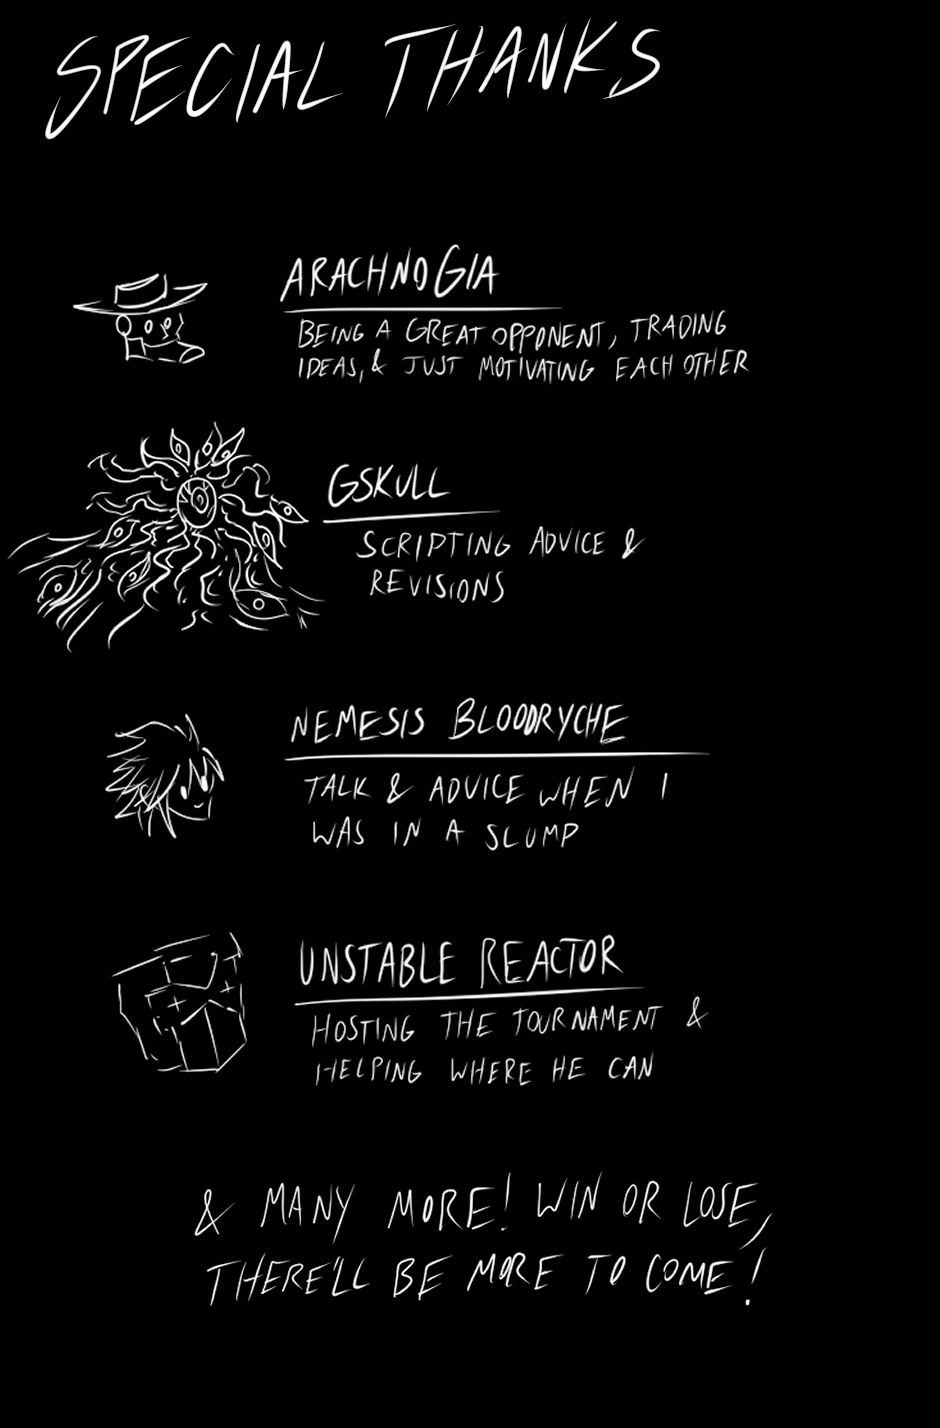 SPECIAL THANKS
ARACHNOGIA
BEING A GREAT OPPONENT, TRADING
IDEAS, & JUST MOTIVATING EACH OTHER
GSKULL
SCRIPTING ADVICE &
REVISIONS
NEMESIS BLOODRYCHE
TALK & ADVICE WHEN I
WAS IN A SLUMP
UNSTABLE REACTOR
HOSTING THE TOURNAMENT &
HELPING WHERE HE CAN
& MANY MORE! WIN OR LOSE,
THERE'LL BE MORE TO COME!